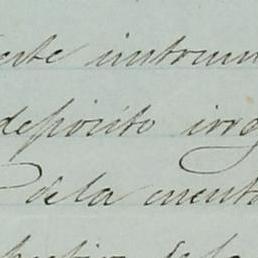 este instrum
deposito irre
de la cuenta